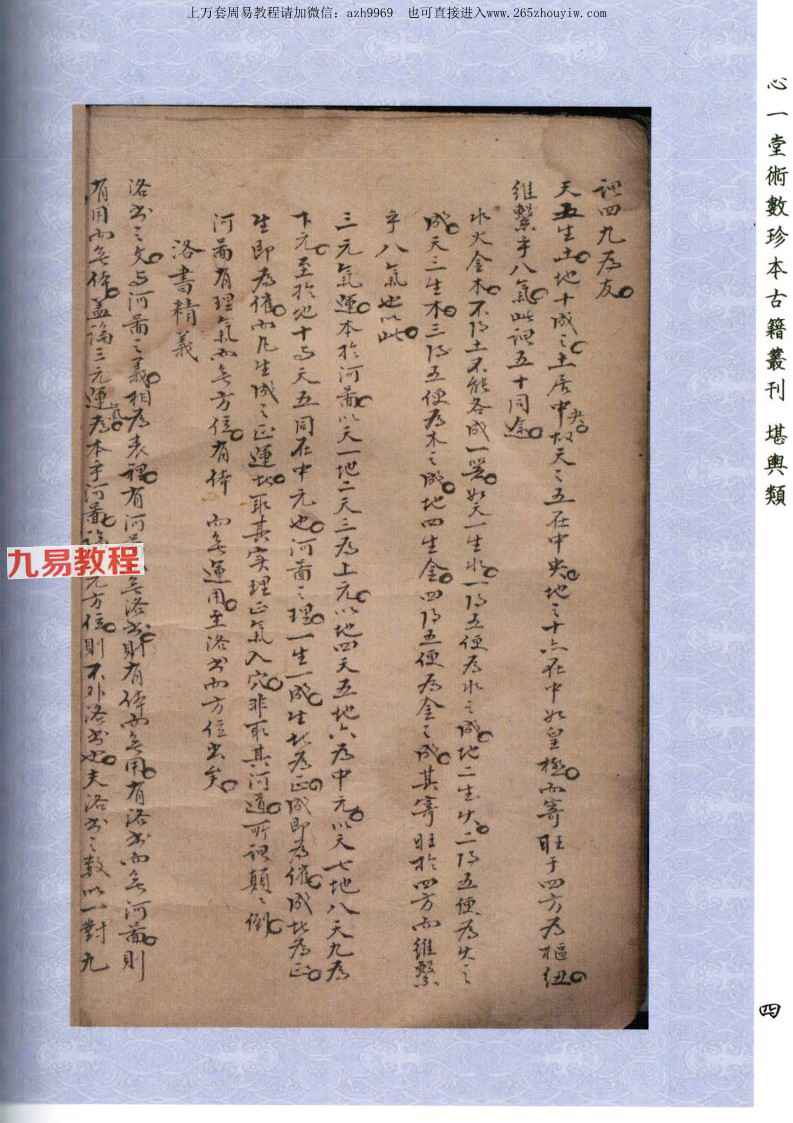 上万套周易教程请加微信：azh9969　也可直接进入www.265zhouyiw.com
心一堂術數珍本古籍叢刊 堪輿類
四
謂四九為友
天五生土地十成之土居中央故天之五在中央地之十亦在中如皇極而寄旺于四方為樞纽
維繫乎八氣此謂五十同途
水火金木不得土不能各成一器如天一生水一得五便為水之成地二生火二得五便為火之
成天三生木三得五便為木之成地四生金四得五便為金之成其寄旺於四方而維繫
乎八氣也以此
三元氣運本於河啚以天一地二天三為上元以地四天五地六為中元以天七地八天九為
下元至於地十與天五同在中元也河啚之理一生一成生此為正成即為催成此為正
生即為催而凡生成之正運此取其实理正氣入穴非取其河道所謂顛顛倒
河啚有理氣而無方位有体 而無運用至洛书而方位出矣
洛書精義
洛书之文與河啚之義相為表裡有河啚無洛书則有体而無用有洛书而無河啚則
有用而無体蓋論三元運氣為本乎河啚 元方位則不外洛书也夫洛书之数以一對九
九易教程